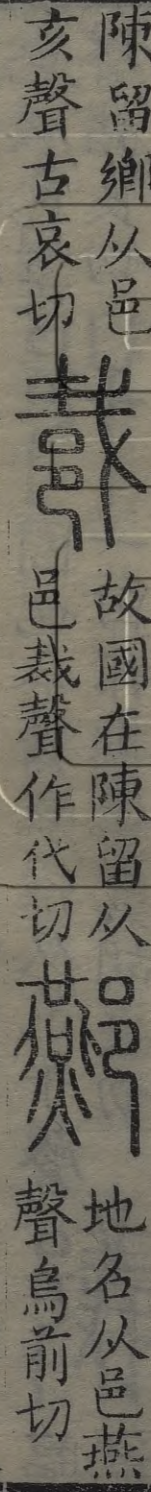 陳留鄉从邑
亥聲古哀切
故國在陳留从
邑裁聲作代切
酀
地名从邑燕
聲烏前切